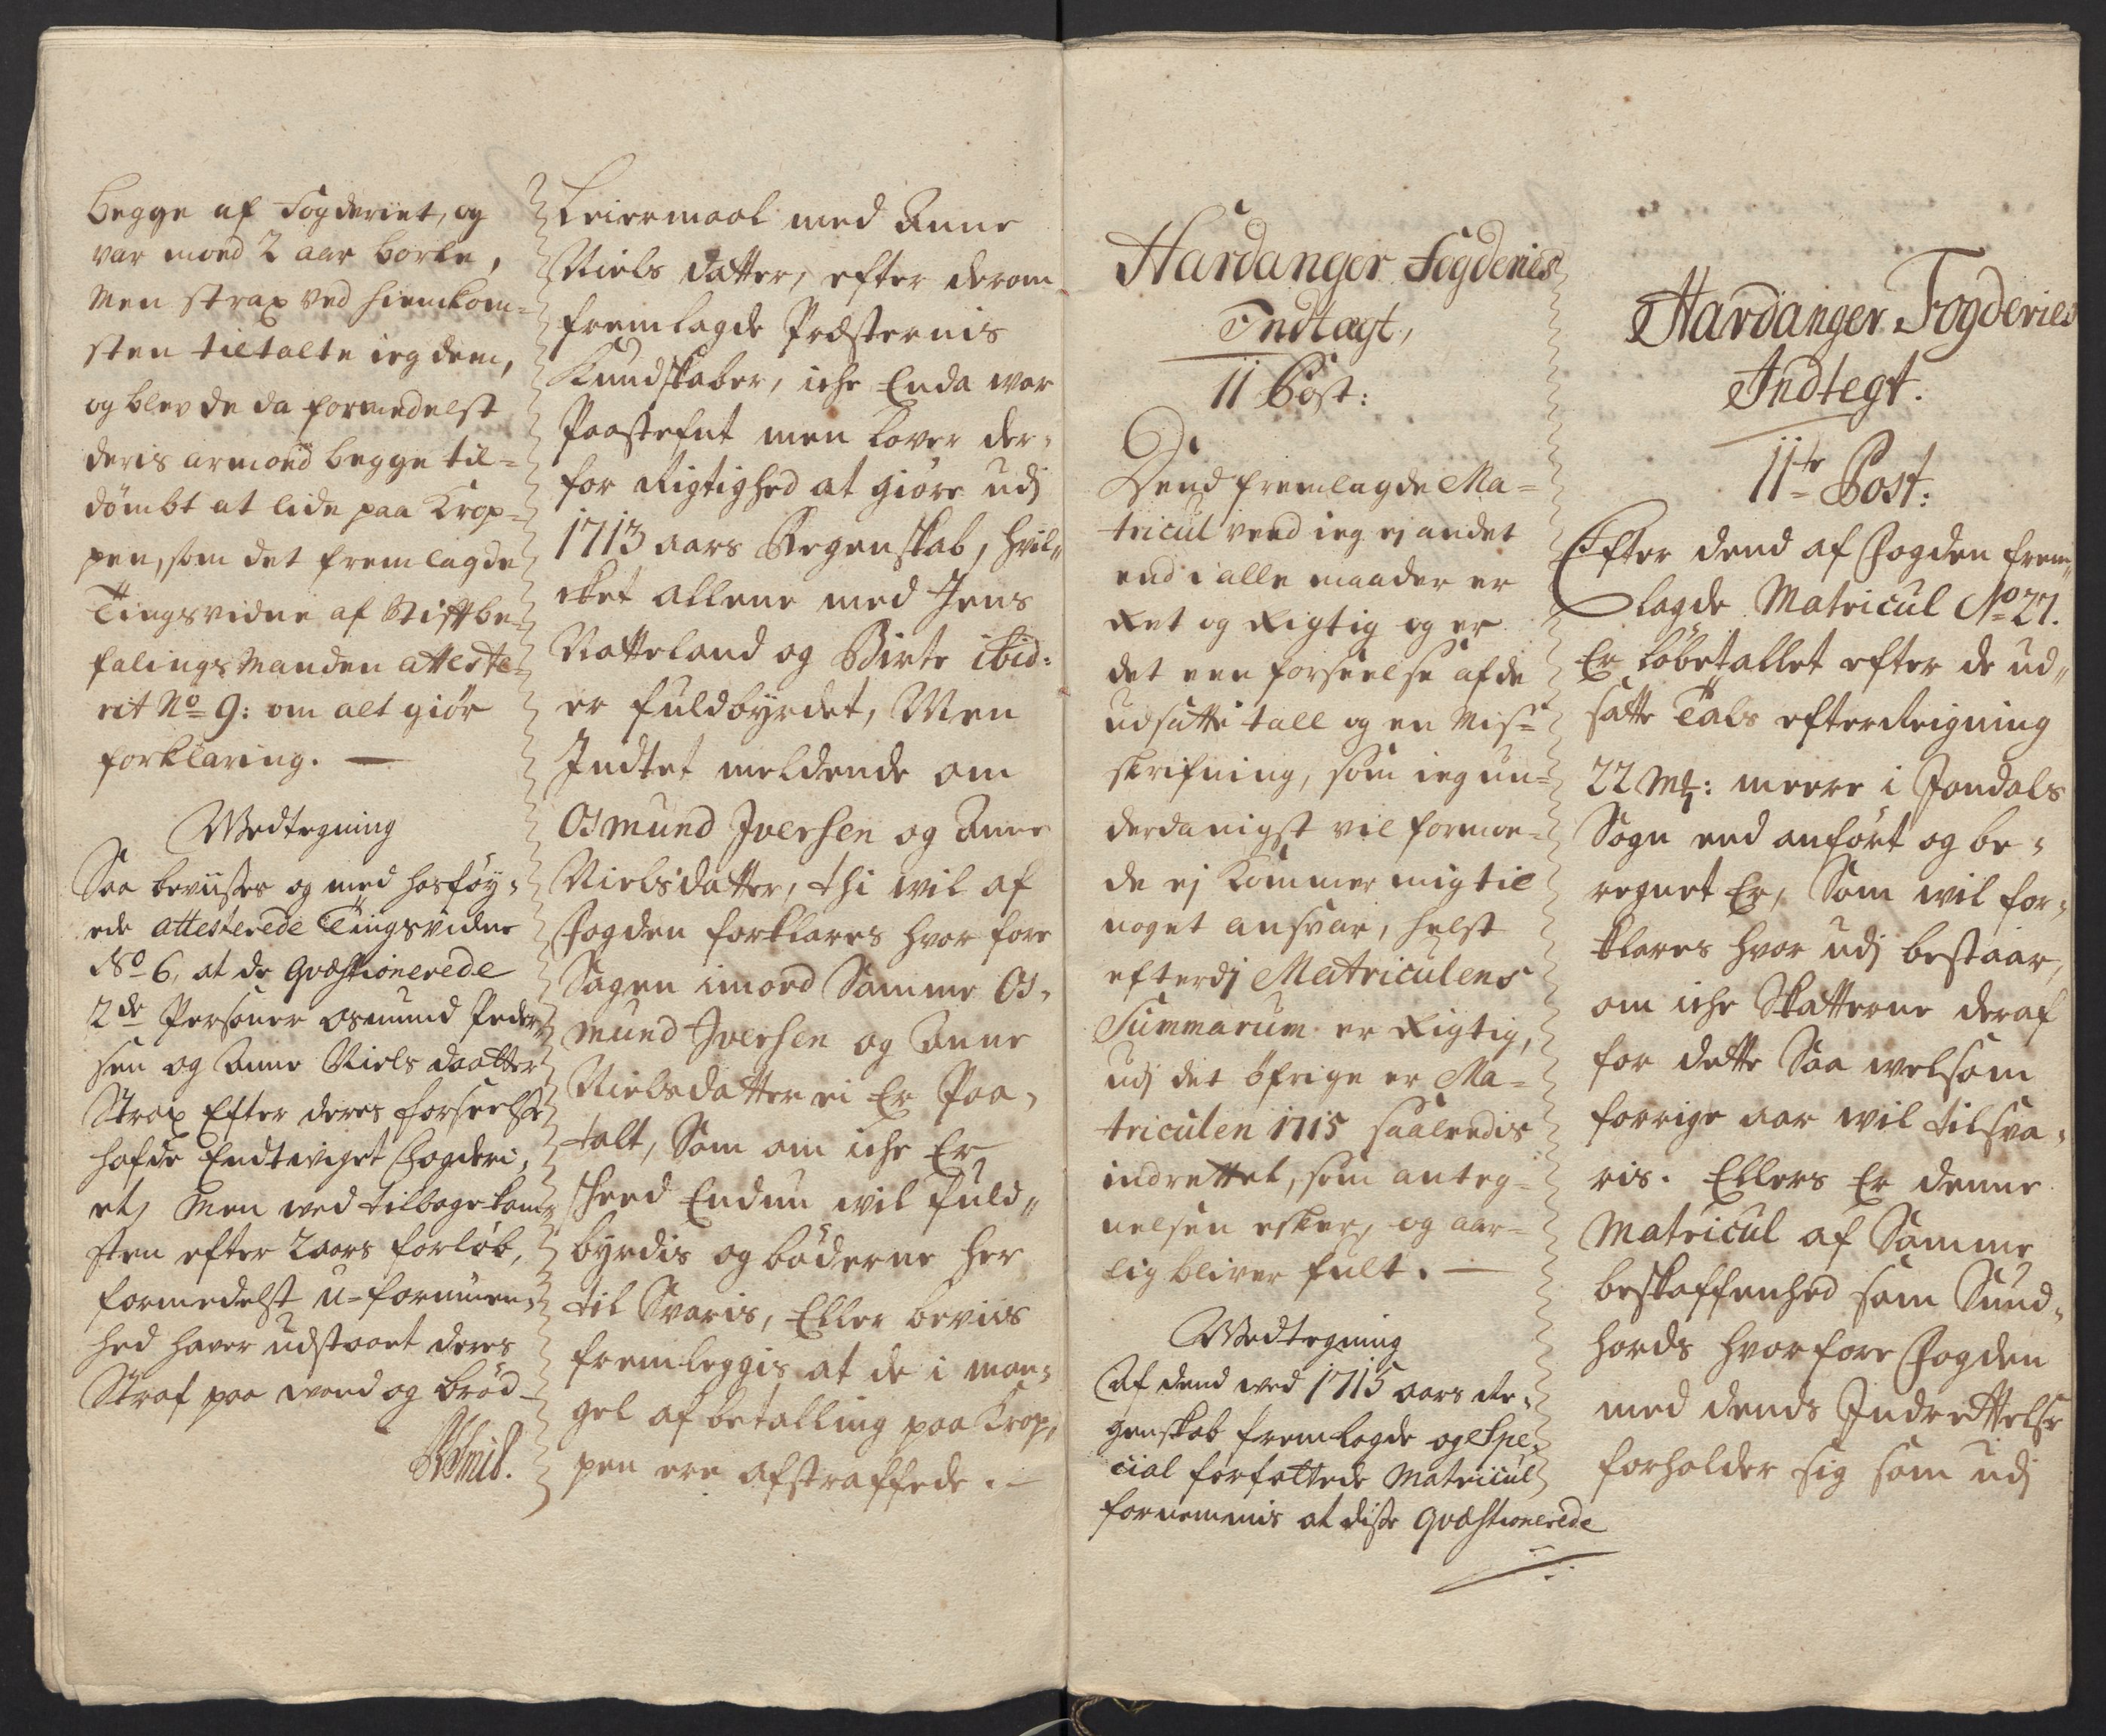 begge af Fogderiet, og
var moed 2 aar borte,
Men strax ved hiemkom=
sten tiltalte ieg dem,
og blev de da formedelst
deris armoed begge til=
dömbt at lide paa Krop=
pen, som det fremlagde
Tingsvidne af Stiftbe=
falings Manden atteste=
rit No 9: om alt giör
forklaring. —
Wedtegning
Saa beviises og med hosföy=
ede attesterede Tingsvidne
No 6, at de Qvæstionerede
2de Personer Osmund Peder=
sen og Anne Niels daatter
Strax Efter deres forseelse
hafde Endtwiget Fogderi=
et, Men ved tilbagekom=
sten efter 2 aars forlöb,
formedelst u=formuen=
hed haver udstaaet deres
Straf paa vand og bröd
Leiermaal med Anne
Niels datter, efter derom
fremlagde Præsternis
Kundskaber, iche Enda var
Paastefnt men lover der=
for Rigtighed at giöre udj
1713 aars Regenskab, hvil=
cket allene med Jens
Natteland og Birte ibid:
er fuldbyrdet, Men
Indtet meldende om
Osmund Iversen og Anne
Nielsdatter, thi vil af
Fogden forklares hvor fore
Sagen imoed Samme Os=
mund Iversen og Anne
Nielsdatter ei Er Paa=
talt, Som om iche Er
skeed Endnu vil fuld=
byrdis og böderne her
til Svaris, Eller beviis
fremleggis at de i man=
gel af betalling paa Krop=
pen ere afstraffede. —
Hardanger Fogderies
Indtægt,
11 Post:
Dend fremlagde Ma=
tricul veed ieg ej andet
end i alle maader er
Ret og Rigtig og er
det een forseelse af de
udsatte tall og en Mis=
skrifning, som ieg un=
derdanigst vil formoe=
de ej kommer mig til
noget ansvar, helst
efterdj Matriculens
Summarum er Rigtig,
udj det öfrige er Ma=
triculen 1715 saaledis
indrettet, som anteg=
nelsen esker, og aar=
lig bliver fult. —
Wedtegning
Af dend ved 1715 aars Re=
genskab fremlagde og Spe=
cial forfattede Matricul
fornemmis at disse Qvæstionerede
Hardanger Fogderies
Indtegt.
11te Post:
Efter dend af Fogden frem=
lagde Matricul No 27.
Er löbetallet efter de ud=
satte Tals efterReigning
22 Mk: meere i Jondals
Sogn end anfört og be=
regnet Er, Som vil for=
klares hvor udj bestaar,
om iche Skatterne deraf
for dette Saa velsom
forrige aar vil tilsva=
ris. Ellers Er denne
Matricul af Samme
beskaffenhed som Sund=
hords hvorfore Fogden
med dends Indrettelse
forholder sig som udj